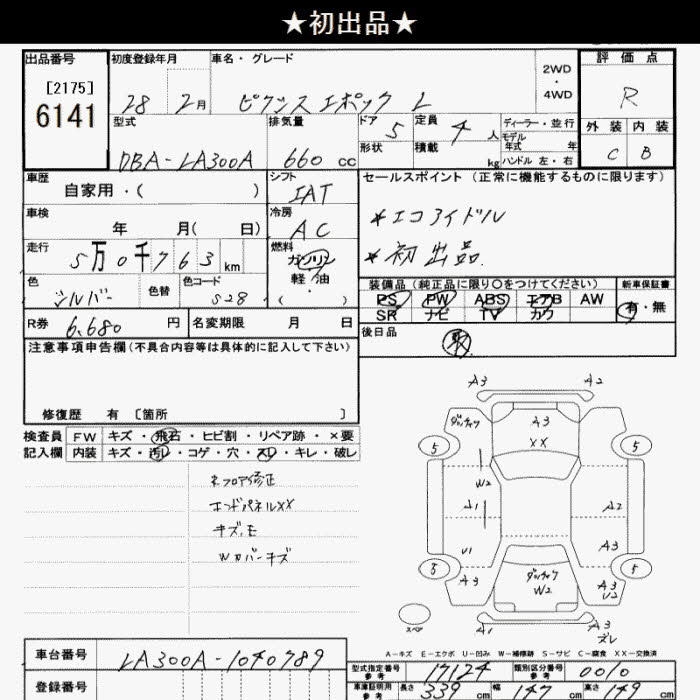 ★初出品★
出品番号 初度登録年月 車名・グレード 2WD・4WD 評価点
[2175]
6141
28 2月 ピクシス エポック L R
型式 排気量 ドア 5 定員 4人 ディーラー・並行 外装 内装
モデル年式 年
DBA-LA300A 660 cc 形状 積載 kg ハンドル 左・右 C B
車歴 自家用・( ) シフト IAT セールスポイント (正常に機能するものに限ります)
車検 年 月( 日) 冷房 AC *エコアイドル
走行 5万0千763km 燃料 ガソリン *初出品
軽・油
・
( )
色 シルバー 色替 色コード S28 装備品 (純正品に限り○をつけてください) 新車保証書
PS PW ABS エアB AW 有・無
SR ナビ TV カワ
R券 6,680 円 名変期限 月 日 後日品
注意事項申告欄(不具合内容等は具体的に記入して下さい)
取
修復歴 有 [箇所 ]
検査員 FW キズ・飛石・ヒビ割・リペア跡・×要
記入欄 内装 キズ・汚レ・コゲ・穴・スレ・キレ・破レ
ネフロア修正
エンドパネルXX
キズ、モ
Wカバーキズ
A3 A2
ダメチャク A3
XX
5 5
W2
A1 A2
U1 A3
5 5
A3 ダメチャク A3
W2 U2
スペア A1 A3
ズレ
A-キズ E-エクボ U-凹み W-補修跡 S-サビ C-腐食 XX-交換済
車台番号 LA300A-1040789
型式指定番号 参考 17124 類別区分番号 参考 0010
登録番号 車庫証明用 参考 長さ 339 cm 幅 147 cm 高さ 149 cm